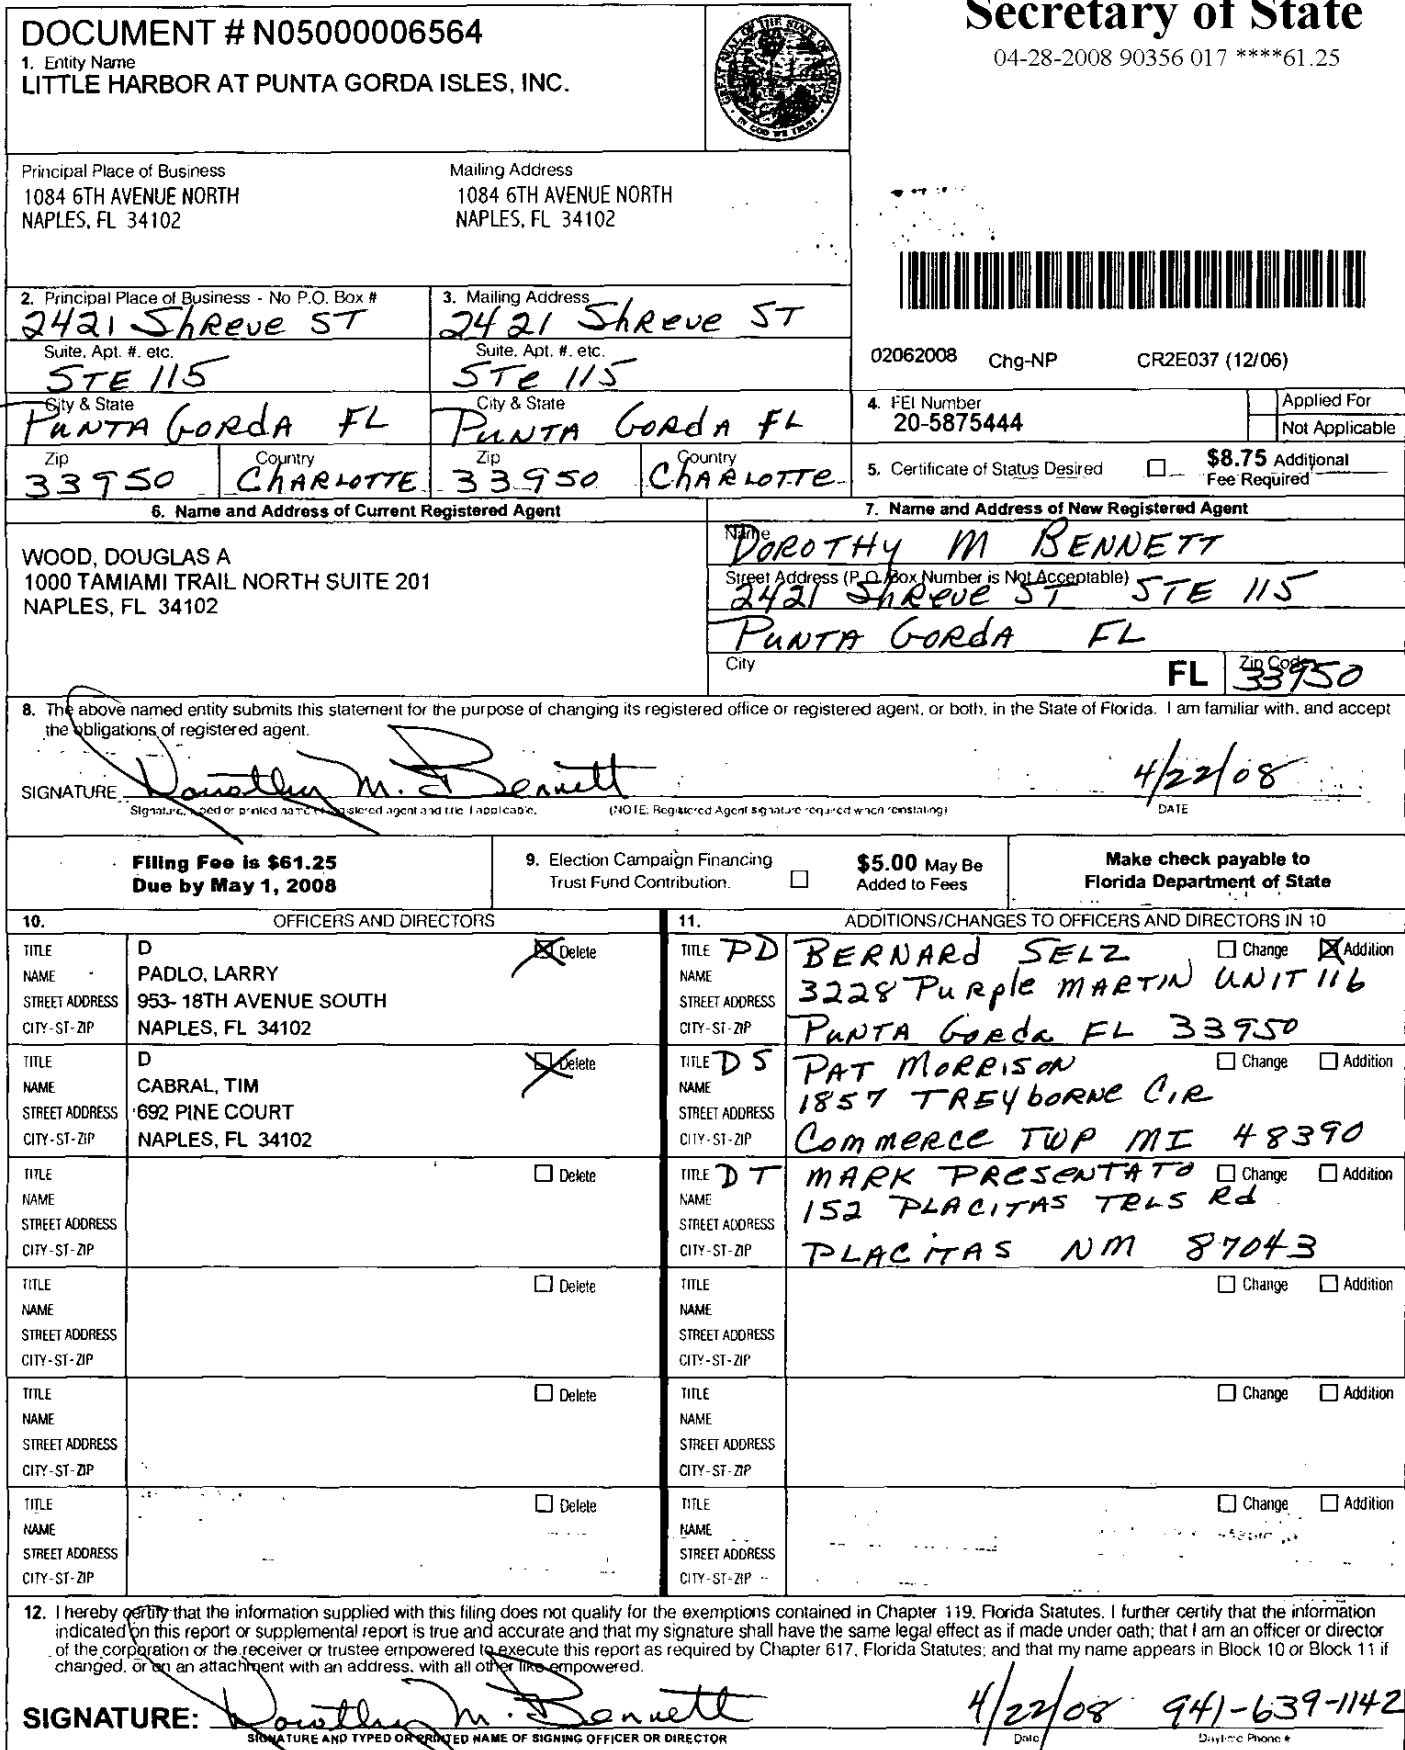 Secretary of State
04-28-2008 90356 017 ****61.25
DOCUMENT # N05000006564
1. Entity Name
LITTLE HARBOR AT PUNTA GORDA ISLES, INC.
GREAT SEAL OF THE STATE OF FLORIDA
IN GOD WE TRUST
Principal Place of Business
1084 6TH AVENUE NORTH
NAPLES, FL 34102
Mailing Address
1084 6TH AVENUE NORTH
NAPLES, FL 34102
2. Principal Place of Business - No P.O. Box #
2421 ShReve ST
3. Mailing Address
2421 ShReve ST
Suite, Apt. #, etc.
STE 115
Suite, Apt. #, etc.
STe 115
City & State
PUNTA GORdA FL
City & State
PUNTA GORdA FL
Zip
33950
Country
CHARLOTTE
Zip
33950
Country
ChARLOTTe
02062008 Chg-NP CR2E037 (12/06)
4. FEI Number
20-5875444
Applied For
Not Applicable
5. Certificate of Status Desired
$8.75 Additional
Fee Required
6. Name and Address of Current Registered Agent
WOOD, DOUGLAS A
1000 TAMIAMI TRAIL NORTH SUITE 201
NAPLES, FL 34102
7. Name and Address of New Registered Agent
Name
DOROTHY M BENNETT
Street Address (P.O. Box Number is Not Acceptable)
2421 ShReve ST STE 115
PUNTA GORdA FL
City
FL
Zip Code
33950
8. The above named entity submits this statement for the purpose of changing its registered office or registered agent, or both, in the State of Florida. I am familiar with, and accept
the obligations of registered agent.
SIGNATURE Dorothy M. Bennett 4/22/08
Signature, typed or printed name of registered agent and title if applicable. (NOTE: Registered Agent signature required when reinstating) DATE
Filing Fee is $61.25
Due by May 1, 2008
9. Election Campaign Financing
Trust Fund Contribution.
$5.00 May Be
Added to Fees
Make check payable to
Florida Department of State
10. OFFICERS AND DIRECTORS
TITLE D Delete
NAME PADLO, LARRY
STREET ADDRESS 953- 18TH AVENUE SOUTH
CITY-ST-ZIP NAPLES, FL 34102
TITLE D Delete
NAME CABRAL, TIM
STREET ADDRESS 692 PINE COURT
CITY-ST-ZIP NAPLES, FL 34102
TITLE Delete
NAME
STREET ADDRESS
CITY-ST-ZIP
TITLE Delete
NAME
STREET ADDRESS
CITY-ST-ZIP
TITLE Delete
NAME
STREET ADDRESS
CITY-ST-ZIP
TITLE Delete
NAME
STREET ADDRESS
CITY-ST-ZIP
11. ADDITIONS/CHANGES TO OFFICERS AND DIRECTORS IN 10
TITLE PD BERNARd SELZ Change Addition
NAME
STREET ADDRESS 3228 PuRple MARTIN UNIT 116
CITY-ST-ZIP PUNTA GORda FL 33950
TITLE DS PAT MORRISON Change Addition
NAME
STREET ADDRESS 1857 TREYbORNE CIR
CITY-ST-ZIP COmmERCE TWP MI 48390
TITLE DT MARK PRESENTATO Change Addition
NAME
STREET ADDRESS 152 PLACITAS TRLS Rd
CITY-ST-ZIP PLACITAS NM 87043
TITLE Change Addition
NAME
STREET ADDRESS
CITY-ST-ZIP
TITLE Change Addition
NAME
STREET ADDRESS
CITY-ST-ZIP
TITLE Change Addition
NAME
STREET ADDRESS
CITY-ST-ZIP
12. I hereby certify that the information supplied with this filing does not qualify for the exemptions contained in Chapter 119, Florida Statutes. I further certify that the information
indicated on this report or supplemental report is true and accurate and that my signature shall have the same legal effect as if made under oath; that I am an officer or director
of the corporation or the receiver or trustee empowered to execute this report as required by Chapter 617, Florida Statutes; and that my name appears in Block 10 or Block 11 if
changed, or on an attachment with an address, with all other like empowered.
SIGNATURE: Dorothy M. Bennett 4/22/08 941-639-1142
SIGNATURE AND TYPED OR PRINTED NAME OF SIGNING OFFICER OR DIRECTOR Date Daytime Phone #